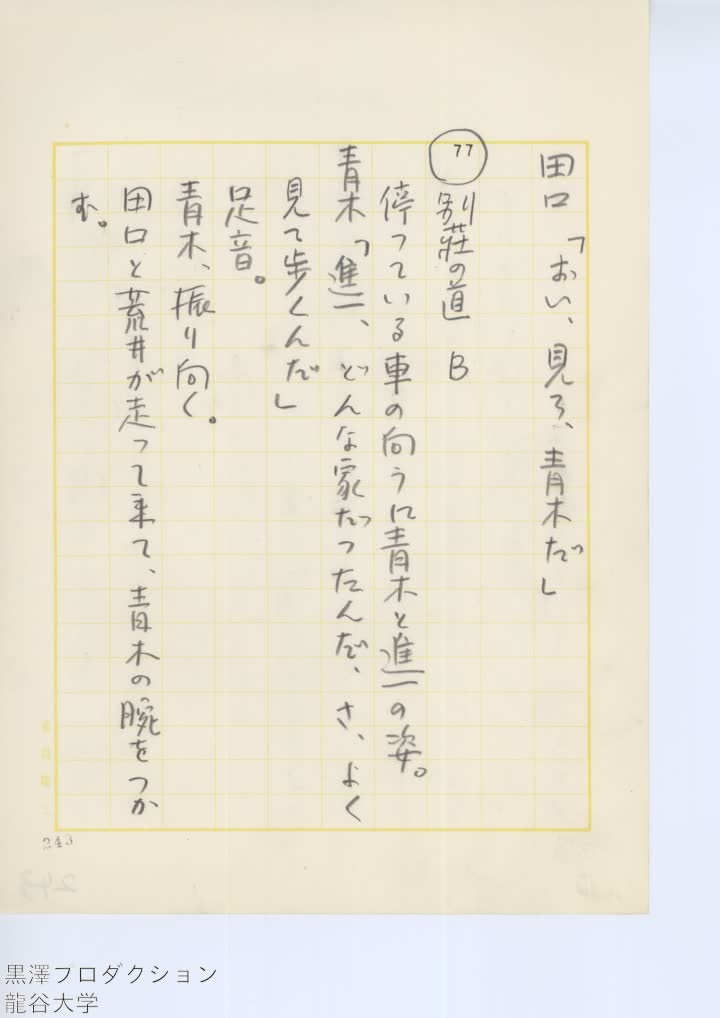 田口「おい、見ろ、青木だ」
77
別荘の道 B
停っている車の向うに青木と進一の姿。
青木「進一、どんな家だったんだ、さ、よく
見て歩くんだ」
足音。
青木、振り向く。
田口と荒井が走って来て、青木の腕をつか
む。
243
黒澤プロダクション
龍谷大学